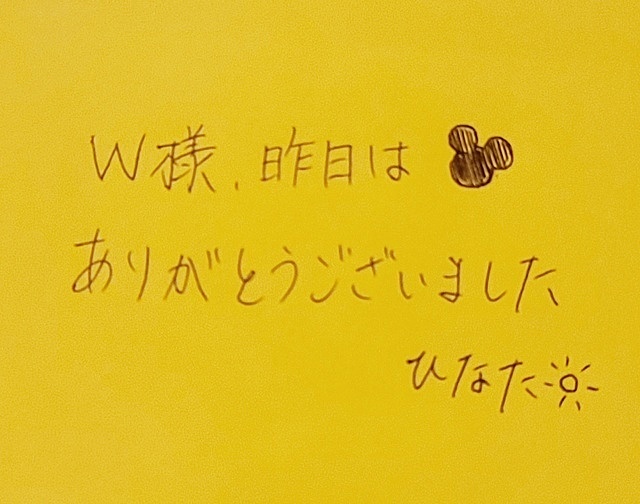 W様、昨日は
ありがとうございました
ひなた